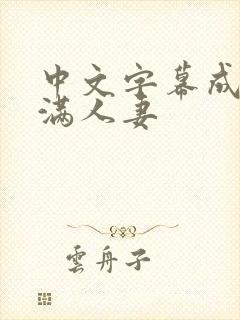 中文字幕成
满人妻
雲舟子